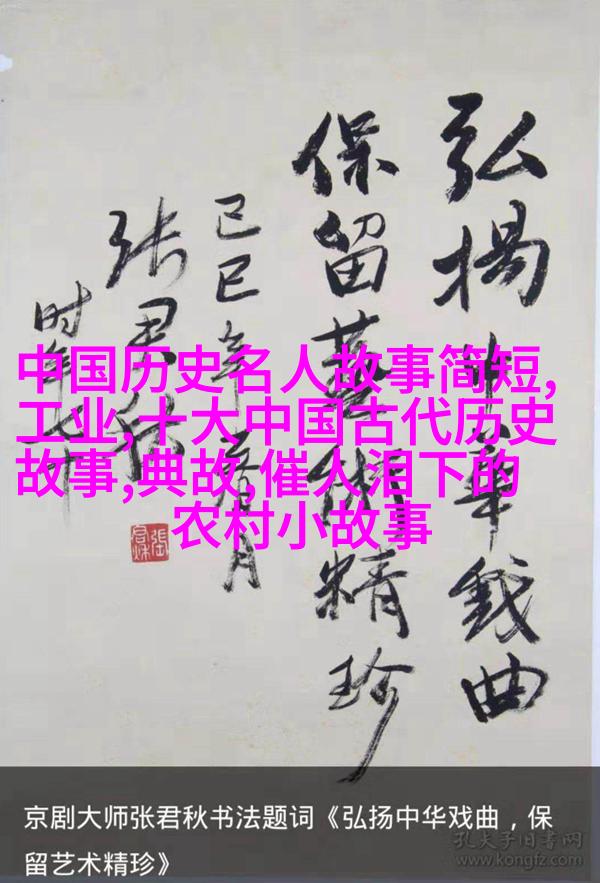 弘揚中華戲曲
保留藝術精珍
己巳年月
张君秋
时年
中国历史名人故事简短,
工业,十大中国古代历史
故事,典故,催人泪下的
农村小故事
京剧大师张君秋书法题词《弘扬中华戏曲，保
留艺术精珍》
孔夫子旧书网
www.kongfz.com